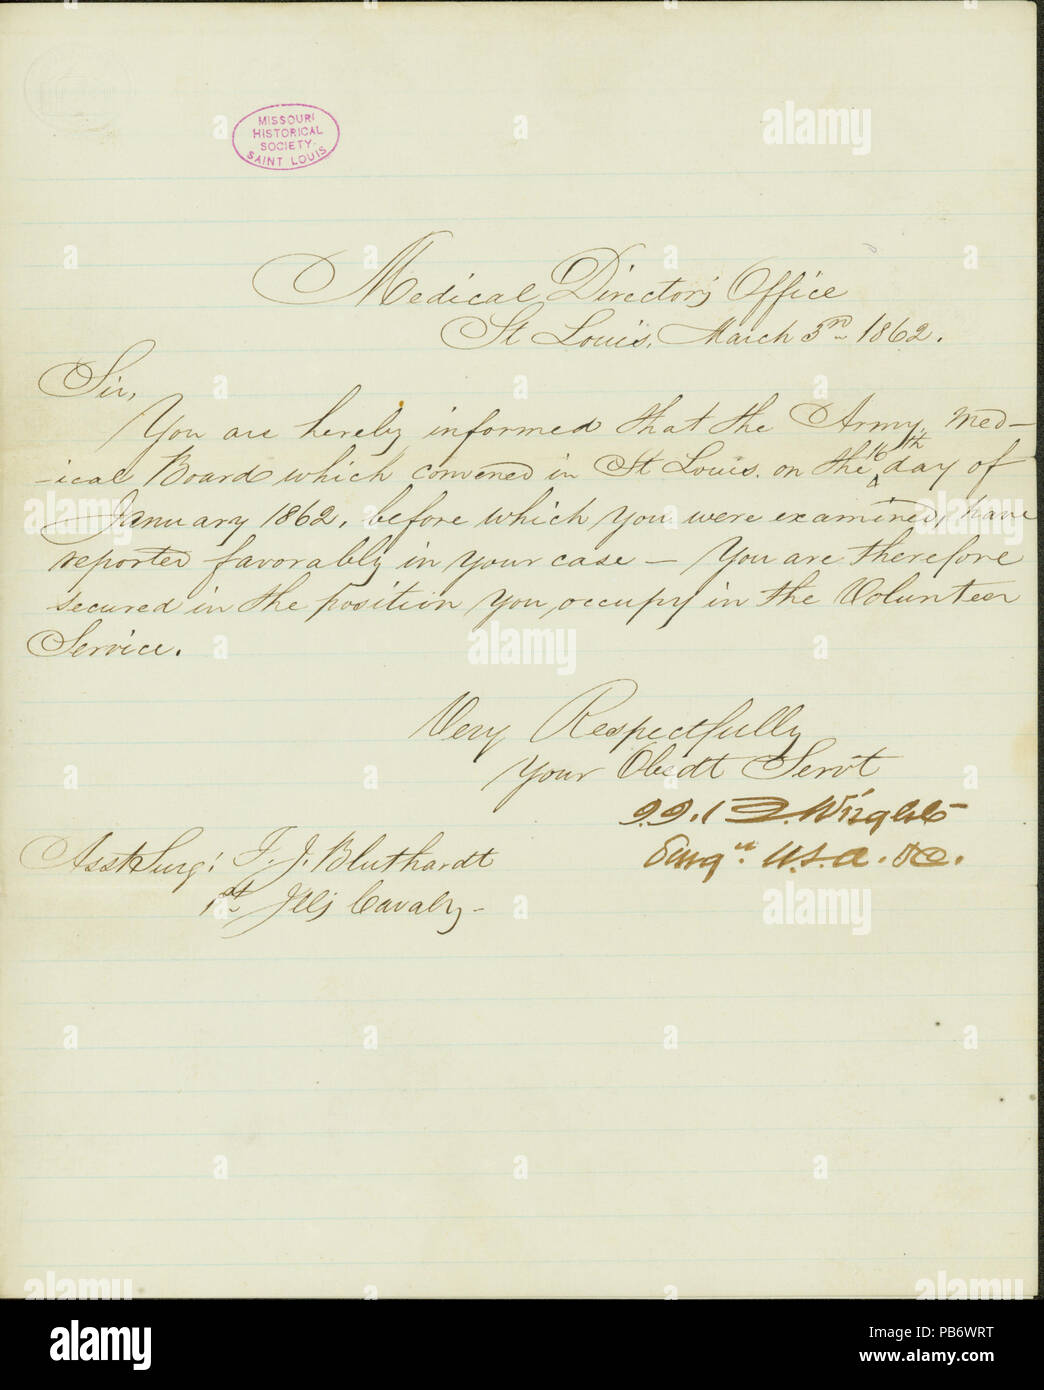 MISSOURI
HISTORICAL
SOCIETY.
SAINT LOUIS
Medical Director's Office
St Louis, March 3rd 1862.
Sir,
You are hereby informed that the Army Med-
-ical Board which convened in St Louis. on the 16th day of
January 1862, before which you were examined, have
reported favorably in your case — You are therefore
secured in the position you occupy in the Volunteer
Service.
Very Respectfully
Your Obedt Servt
Wright
Surgn. U.S.A. &c.
Asst Surg: T. J. Bluthardt
1st Ills Cavalry -
alamy
Image ID: PB6WRT
www.alamy.com